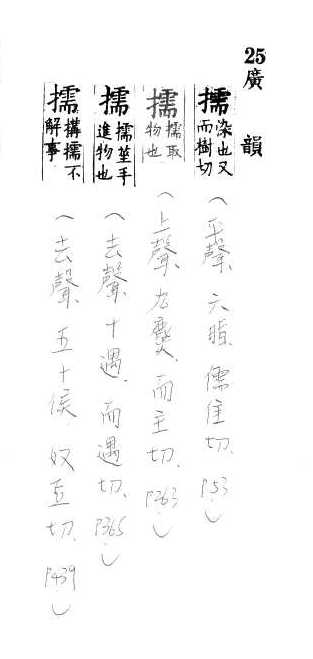 25廣韻
擩染也又而樹切（平聲、六脂、儒隹切、P.53）
擩擩取物也（上聲、九麌、而主切、P263）
擩擩莝手進物也（去聲、十遇、而遇切、P365）
擩搆擩不解事（去聲、五十候、奴豆切、P439）